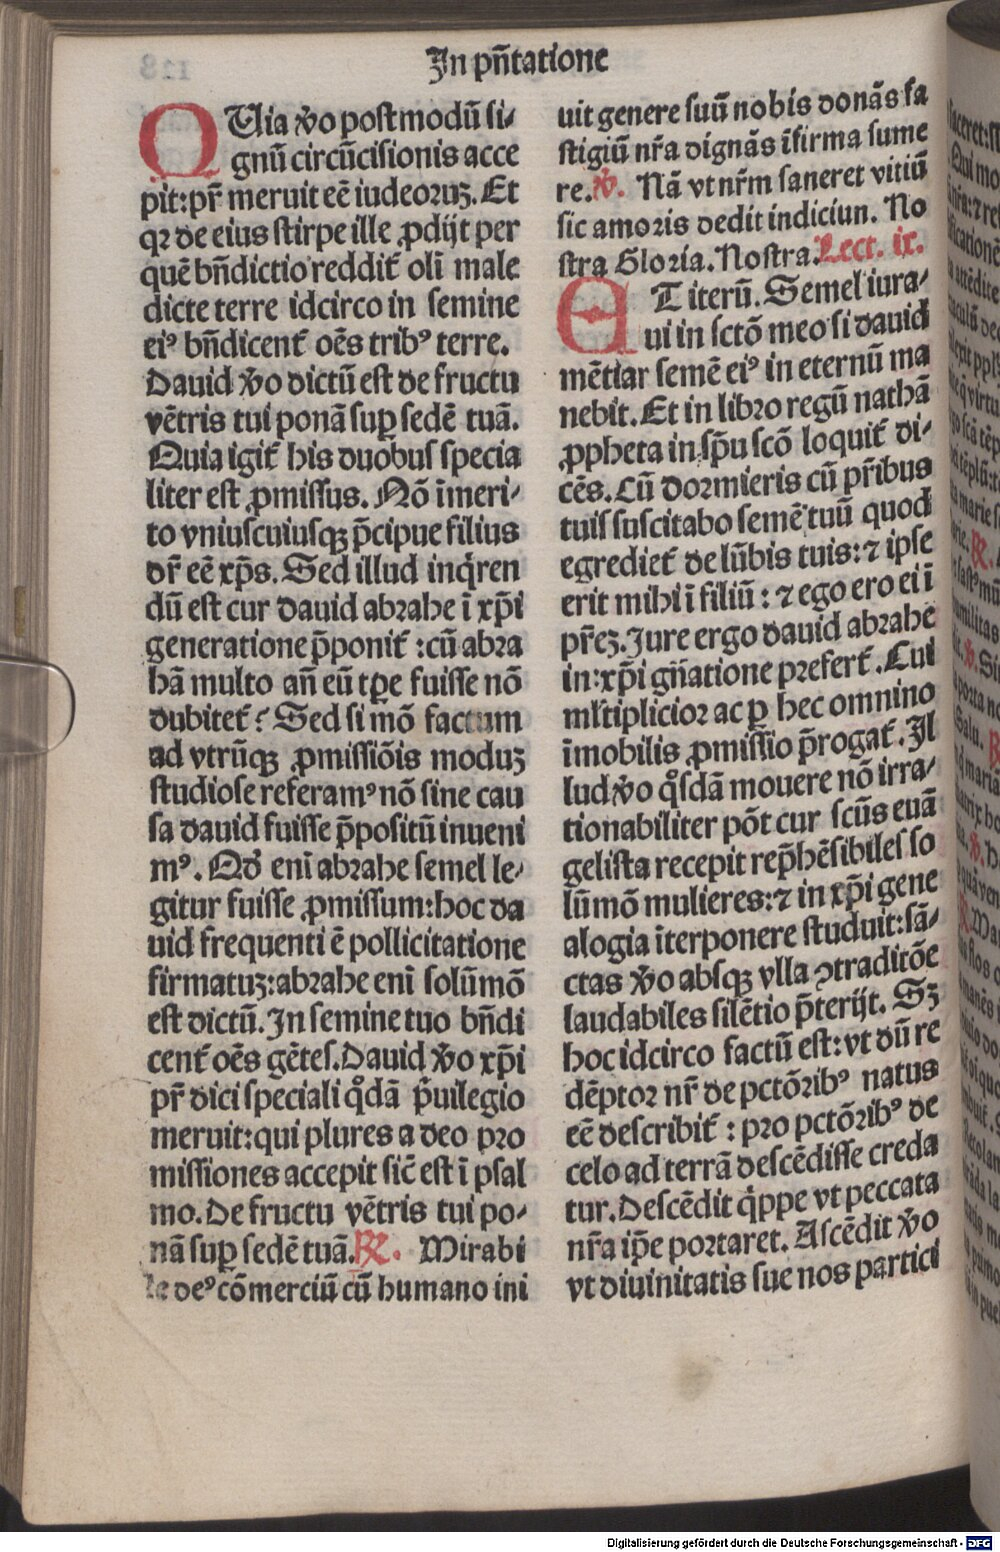 In pñtatione
QUia ꝟo postmodũ si⸗
gnũ circũcisionis acce
pit: pr̃ meruit eẽ iudeoruꝫ. Et
qꝛ de eius stirpe ille ꝓdijt per
quẽ bñdictio reddit̃ oli male
dicte terre idcirco in semine
eiꝰ bñdicent̃ oẽs tribꝰ terre.
Dauid ꝟo dictũ est de fructu
vẽtris tui ponã suꝑ sedẽ tuã.
Quia igit̃ his duobus specia
liter est ꝓmissus. Nõ ĩmeri⸗
to vniuscuiusqꝫ p̃cipue filius
dr̃ eẽ xp̃s. Sed illud inq̃ren
dũ est cur dauid abrahe ĩ xp̃i
generatione p̃ponit̃ : cũ abra
hã multo añ eũ tꝑe fuisse nõ
dubitet̃? Sed si mõ factum
ad vtrũqꝫ ꝓmissiõis moduꝫ
studiose referamꝰ nõ sine cau
sa dauid fuisse p̃positũ inueni
mꝰ. Qđ eni abrahe semel le⸗
gitur fuisse ꝓmissum: hoc da
uid frequenti ẽ pollicitatione
firmatuꝫ: abrahe eni solũmõ
est dictũ. In semine tuo bñdi
cent̃ oẽs gẽtes. Dauid ꝟo xp̃i
pr̃ dici speciali q̊dã p̃uilegio
meruit: qui plures a deo pro
missiones accepit sic̃ est ĩ psal
mo. De fructu vẽtris tui po⸗
nã suꝑ sedẽ tuã. ℞. Mirabi
le deꝰ cõmerciũ cũ humano ini
uit genere suũ nobis donãs fa
stigiũ nr̃a dignãs ĩfirma sume
re. ℣. Nã vt nr̃m saneret vitiũ
sic amoris dedit indiciun. No
stra Gloria. Nostra. Lect. ix.
ET iterũ. Semel iura⸗
ui in sctõ meo si dauid
mẽtiar semẽ eiꝰ in eternũ ma
nebit. Et in libro regũ nathã
ꝓpheta in sp̃u scõ loquit̃ di⸗
cẽs. Cũ dormieris cũ pr̃ibus
tuis suscitabo semẽ tuũ quod
egrediet̃ de lũbis tuis: ⁊ ipse
erit mihi ĩ filiũ : ⁊ ego ero ei ĩ
pr̃eꝫ. Jure ergo dauid abrahe
in: xp̃i gñatione prefert̃. Cui
ml̃tiplicior ac ꝑ hec omnino
ĩmobilis ꝓmissio p̃rogat̃. Il
lud ꝟo q̊sdã mouere nõ irra⸗
tionabiliter põt cur scũs euã
gelista recepit rep̃hẽsibiles so
lũmõ mulieres: ⁊ in xp̃i gene
alogia ĩterponere studuit: sã⸗
ctas ꝟo absqꝫ vlla ꝯtraditõe
laudabiles silẽtio p̃terijt. Sꝫ
hoc idcirco factũ est: vt dũ re
dẽptor nr̃ de pctõribꝰ natus
eẽ describit̃ : pro pctõribꝰ de
celo ad terrã descẽdisse creda
tur. Descẽdit q̃ppe vt peccata
nr̃a ip̃e portaret. Ascẽdit ꝟo
vt diuinitatis sue nos partici
Digitalisierung gefördert durch die Deutsche Forschungsgemeinschaft - DFG